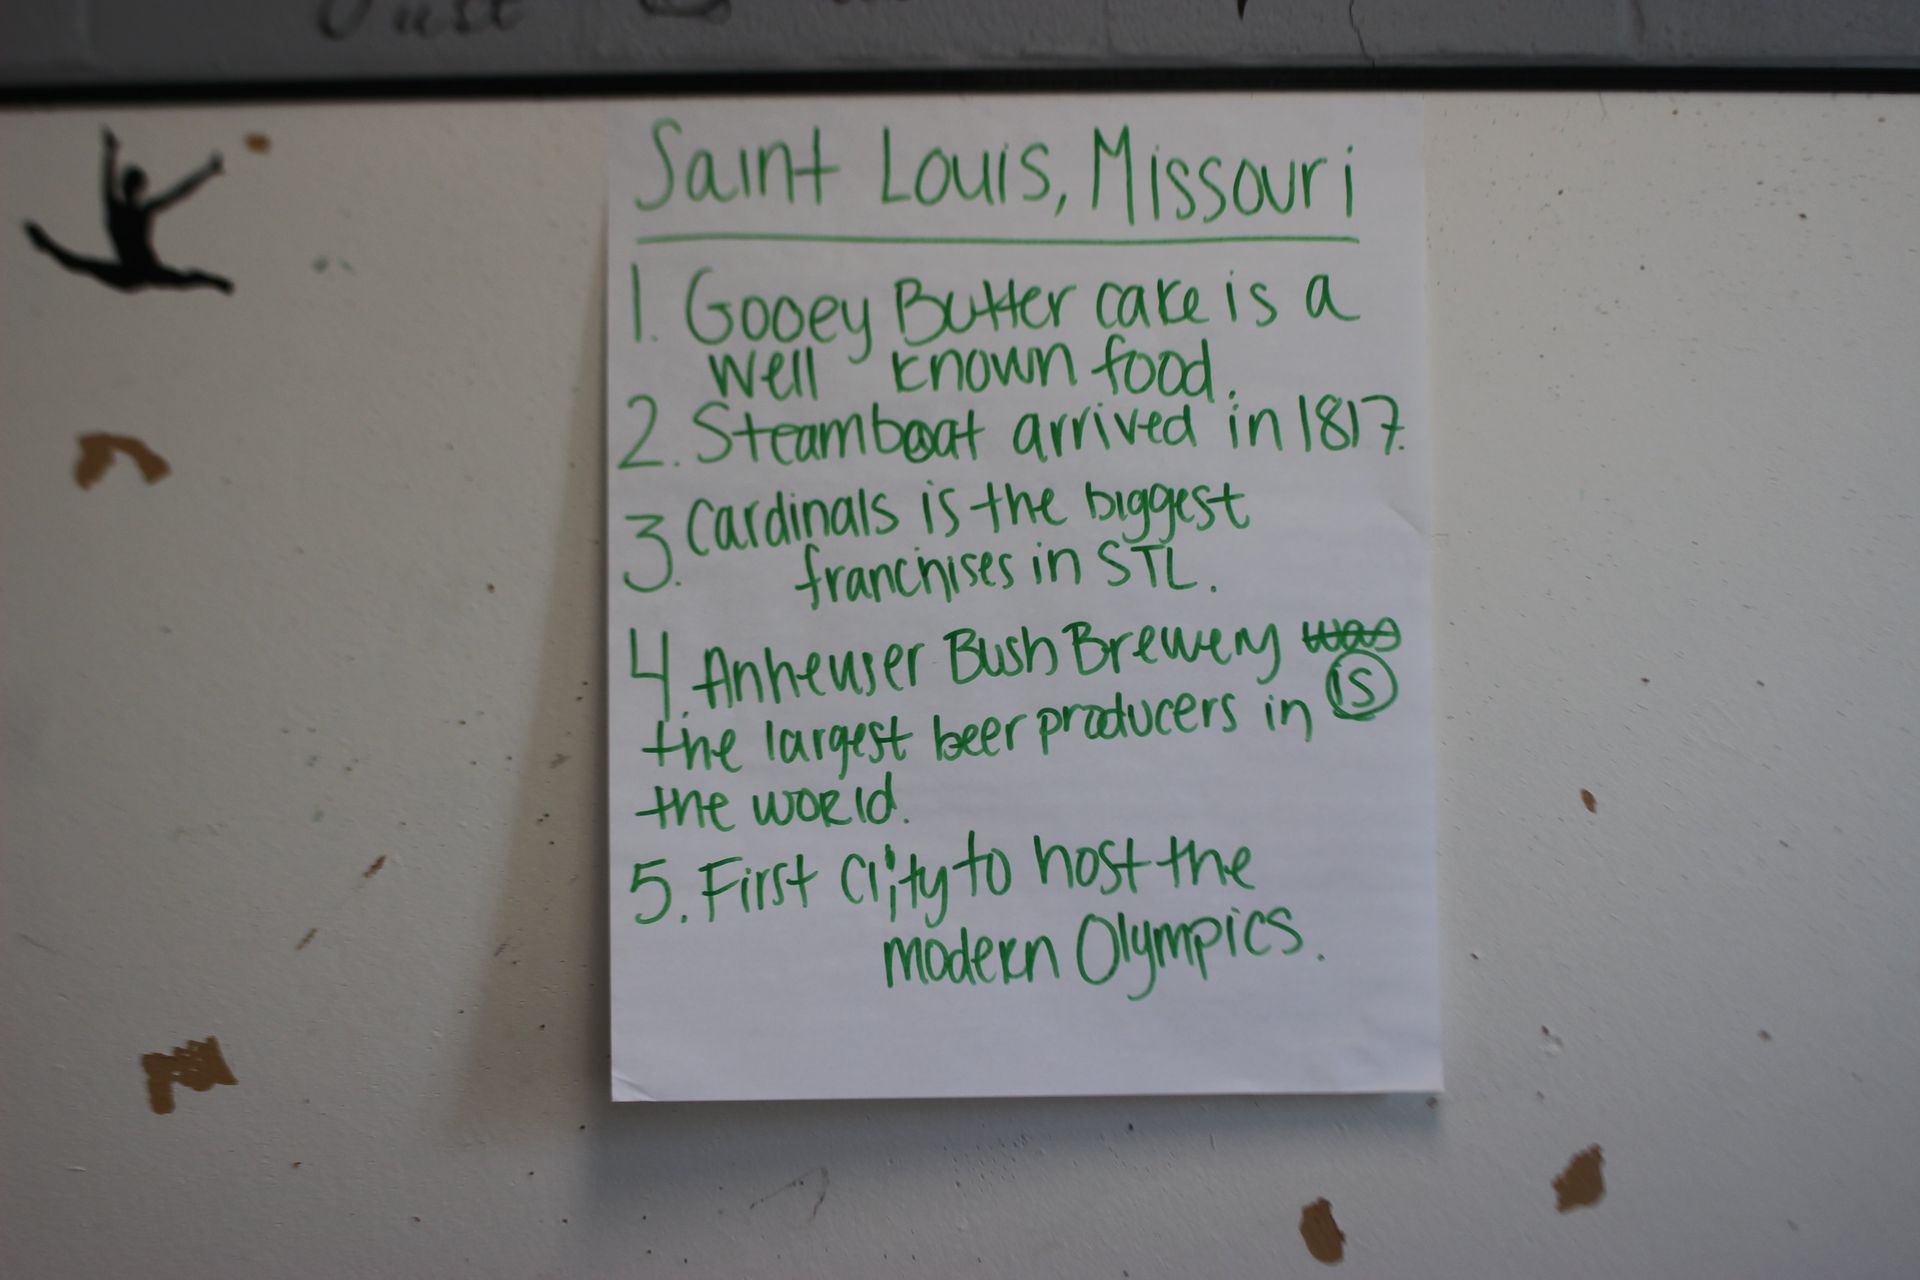 Just
Saint Louis, Missouri
1. Gooey Butter cake is a
well known food.
2. Steamboat arrived in 1817.
3. Cardinals is the biggest
franchises in STL.
4. Anheuser Bush Brewery was
is
the largest beer producers in
the world.
5. First city to host the
modern Olympics.